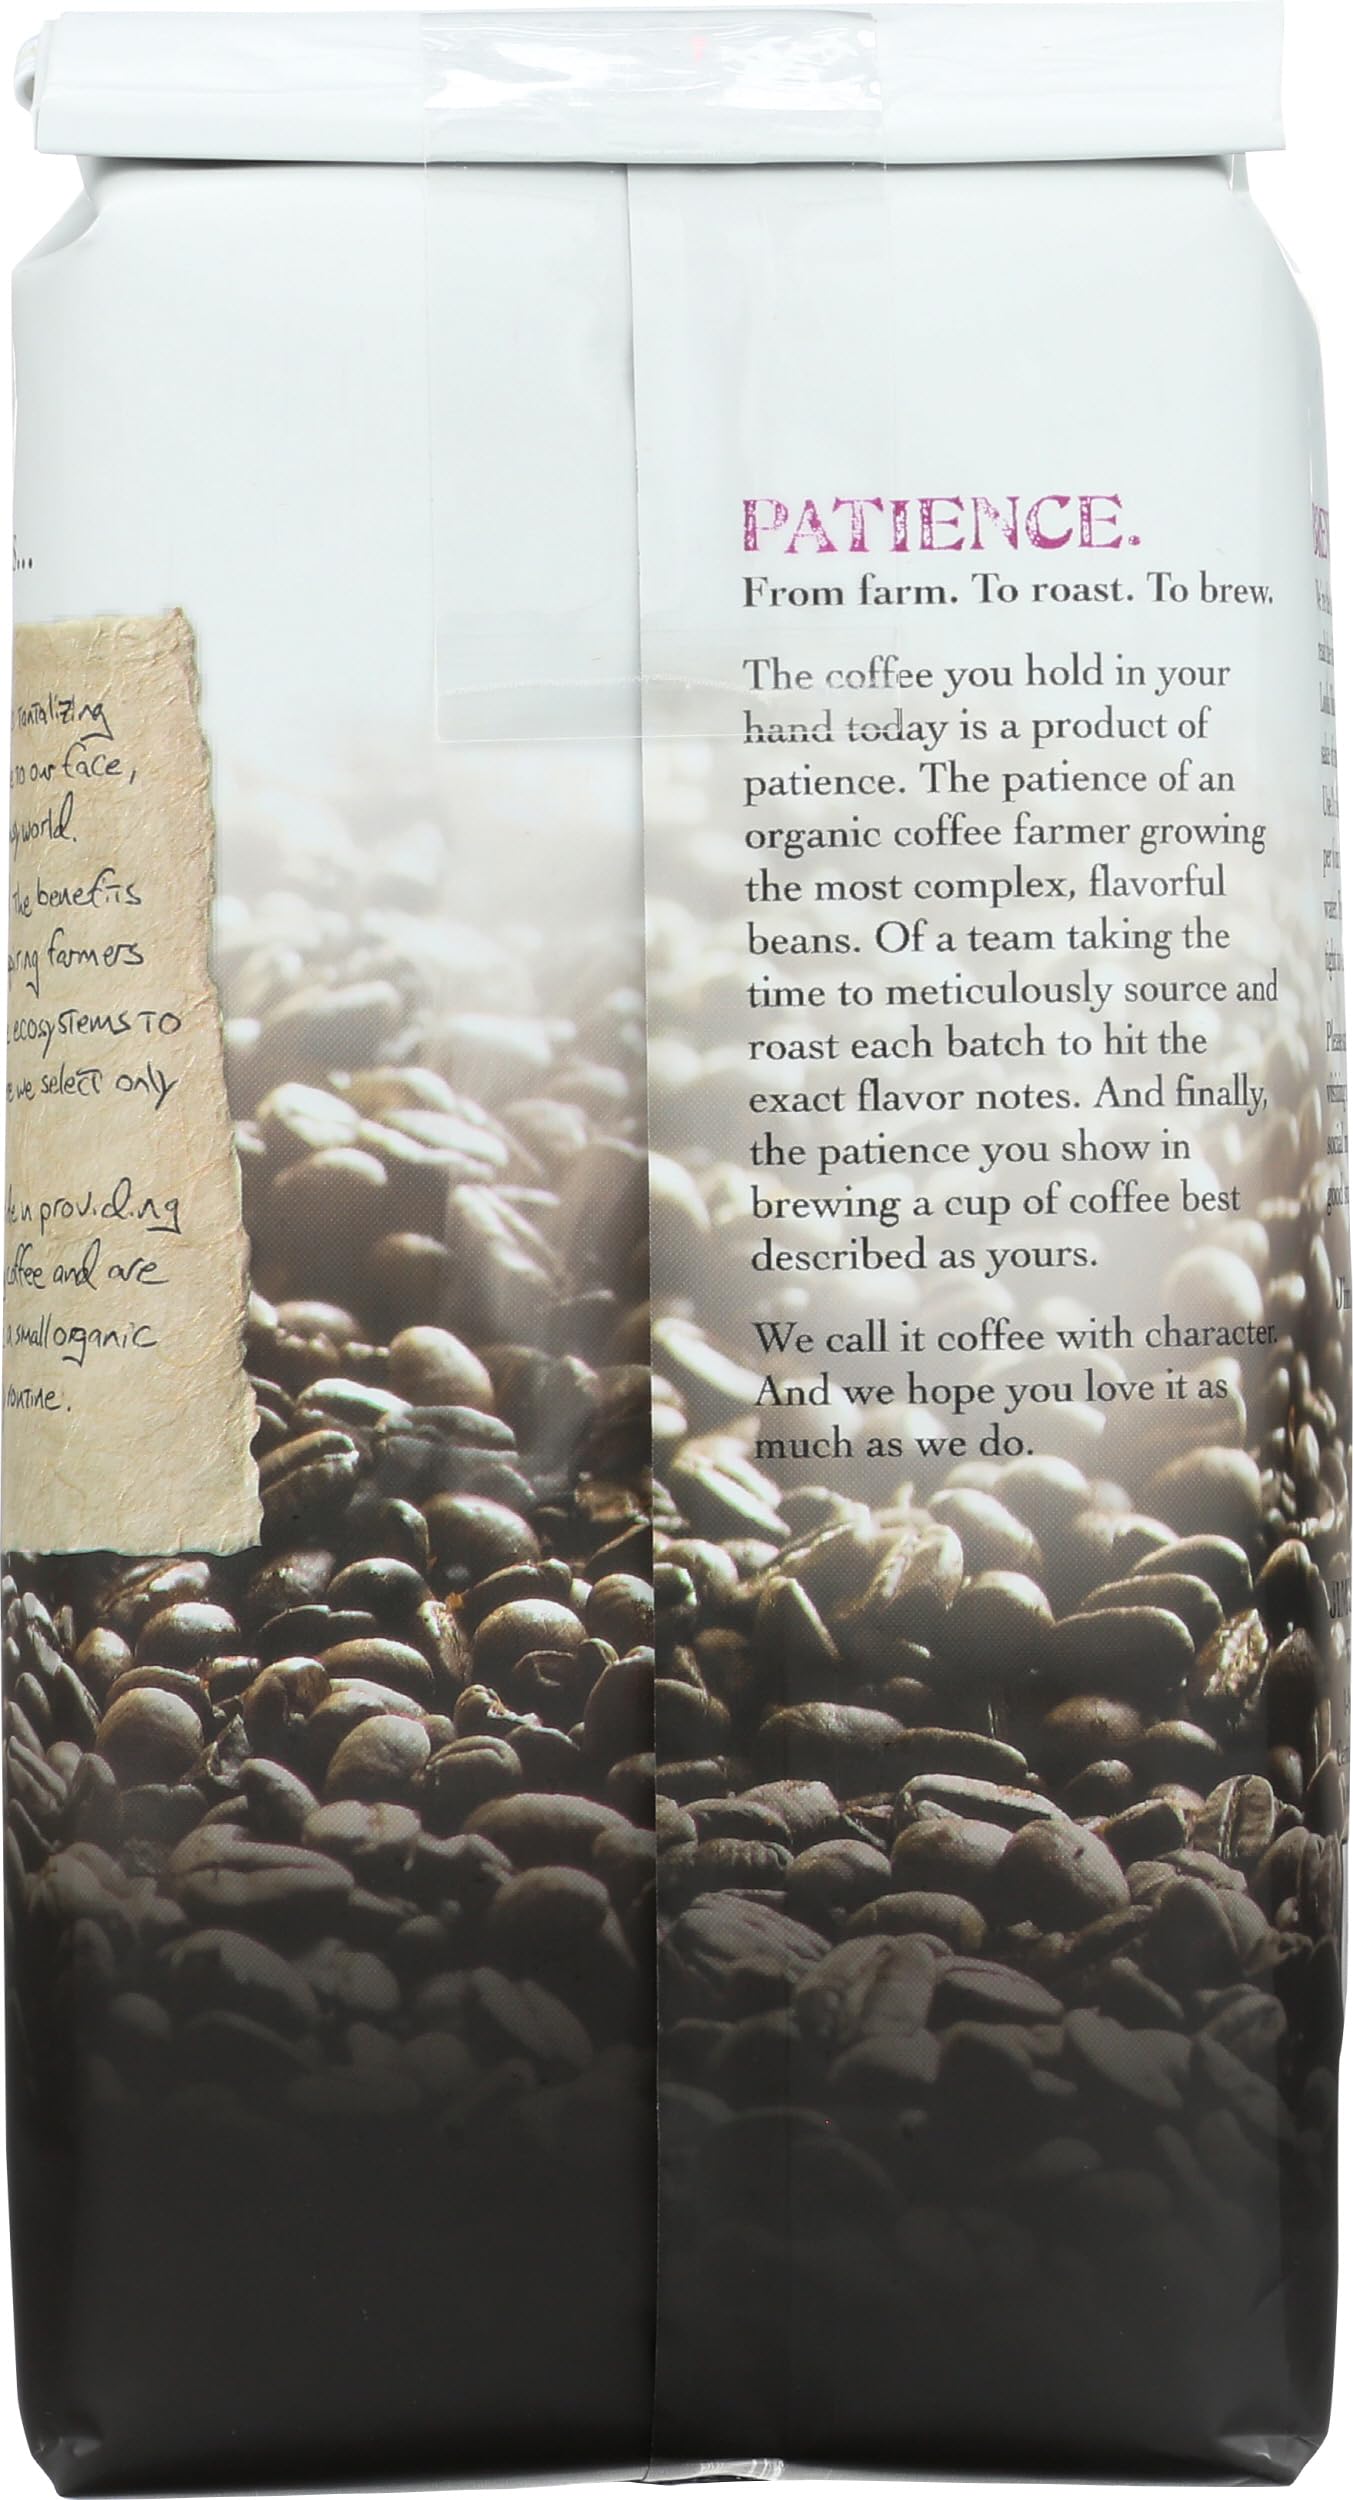 tantalizing
to our face,
world.
the benefits
farmers
ecosystems to
we select only
providing
coffee and are
a small organic
PATIENCE.
From farm. To roast. To brew.
The coffee you hold in your
hand today is a product of
patience. The patience of an
organic coffee farmer growing
the most complex, flavorful
beans. Of a team taking the
time to meticulously source and
roast each batch to hit the
exact flavor notes. And finally,
the patience you show in
brewing a cup of coffee best
described as yours.
We call it coffee with character.
And we hope you love it as
much as we do.